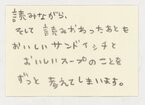 読みながら、
そして 読みおわったあとも
おいしいサンドイッチと
おいしいスープのことを
ずっと 考えてしまいます。